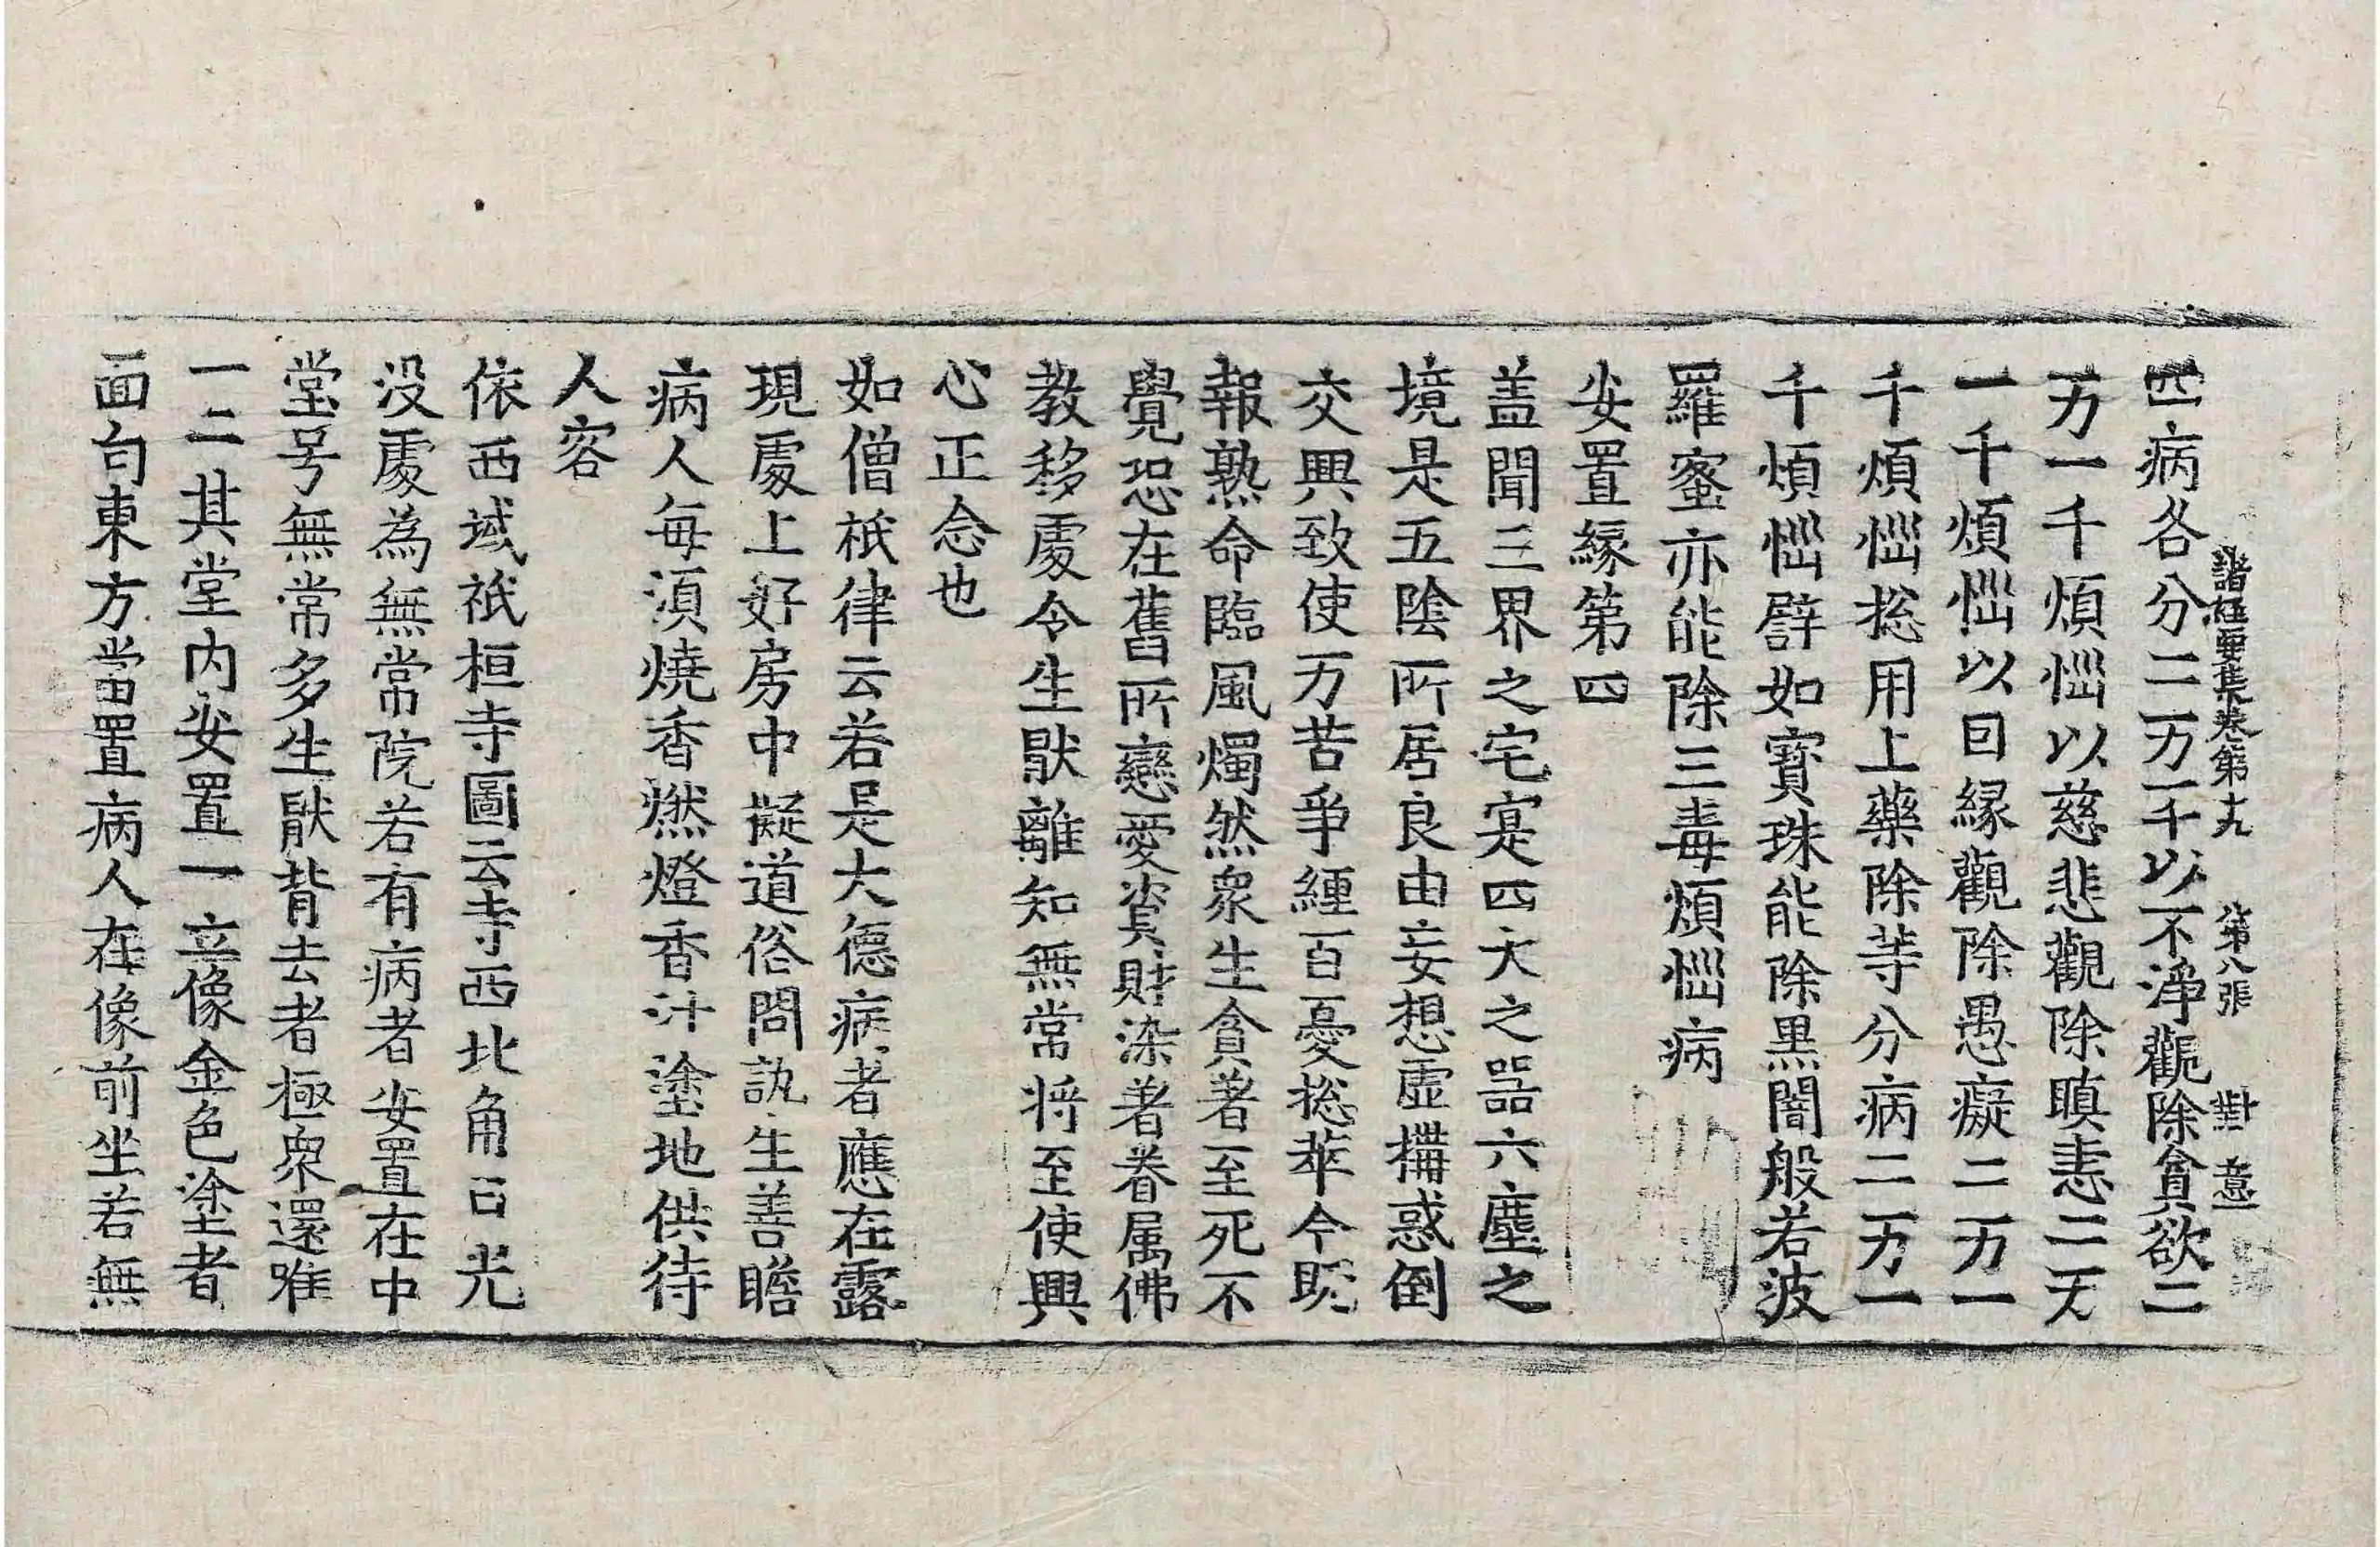 諸經要集卷第十九 第八張 對 意
四病各分二万一千以不淨觀除貪欲二
万一千煩惱以慈悲觀除瞋恚二万
一千煩惱以因緣觀除愚癡二万一
千煩惱捴用上藥除等分病二万一
千煩惱譬如寳珠能除黒闇般若波
羅蜜亦能除三毒煩惱病
安置縁第四
盖聞三界之宅寔四大之器六塵之
境是五陰所居良由妄想虚搆惑倒
交興致使万苦爭纏百憂捴萃今既
報熟命臨風燭然衆生貪著至死不
覺恐在舊所戀愛資財染著眷属佛
教移處令生猒離知無常将至使興
心正念也
如僧祇律云若是大德病者應在露
現處上好房中擬道俗問訊生善瞻
病人每湏燒香燃燈香汁塗地供待
人客
依西域祇桓寺圖云寺西北角日光
没處為無常院若有病者安置在中
堂号無常多生猒背去者極衆還唯
一二其堂内安置一立像金色塗者
面向東方當置病人在像前坐若無